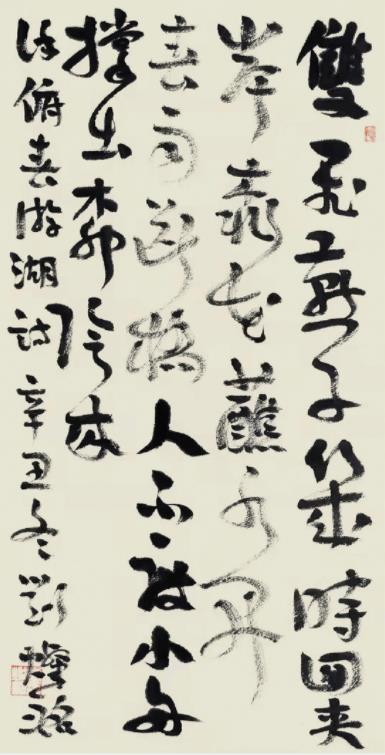 雙飛燕子幾時回夾
岸桃花蘸水開
春雨斷橋人不度小舟
撐出柳陰來
徐俯春游湖詩辛丑冬劉燦銘